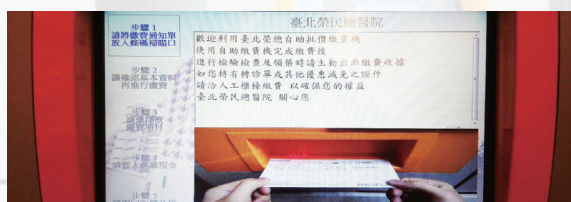 臺北榮民總醫院
步驟 1
請將繳費通知單
放入條碼掃瞄口
步驟 2
請確認基本資料
再進行繳費
步驟 3
繳費項目
步驟 4
步驟 5
歡迎利用臺北榮總自助批價繳費機
使用自助繳費機完成繳費後
進行檢驗檢查及領藥時請主動出示繳費收據
如您持有轉診單或其他優惠減免之證件
請洽人工櫃檯繳費 以確保您的權益
臺北榮民總醫院 關心您